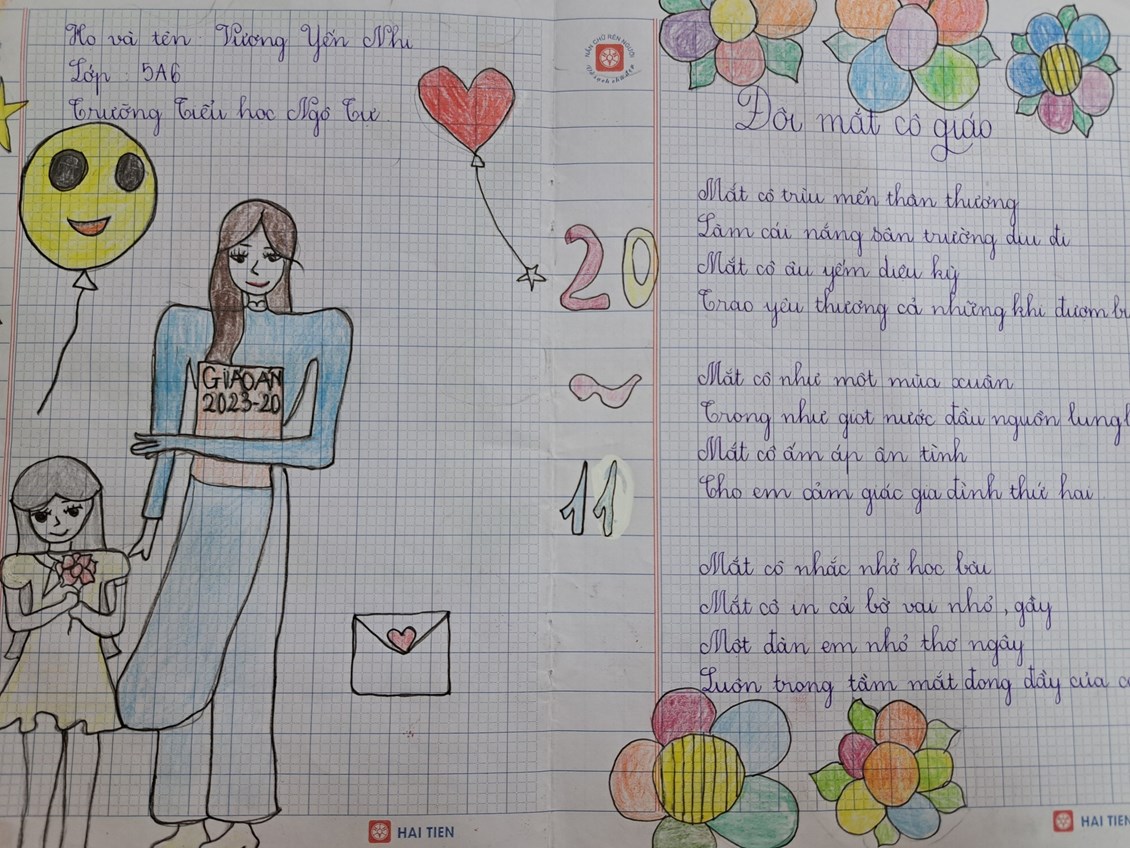 Họ và tên : Vương Yến Nhi
Lớp : 5A6
Trường Tiểu học Ngô Tư
GIÁO ÁN
2023-20
HAI TIEN
NẮN CHỮ RÈN NGƯỜI
20
~
11
Đôi mắt cô giáo
Mắt cô trìu mến thân thương
Làm cái nắng sân trường dịu đi
Mắt cô âu yếm diệu kỳ
Trao yêu thương cả những khi đượm
Mắt cô như một mùa xuân
Trong như giọt nước đầu nguồn lung
Mắt cô ấm áp ân tình
Cho em cảm giác gia đình thứ hai
Mắt cô nhắc nhở học bài
Mắt cô in cả bờ vai nhỏ, gầy
Một đàn em nhỏ thơ ngây
Luôn trong tầm mắt đong đầy của
HAI TIEN